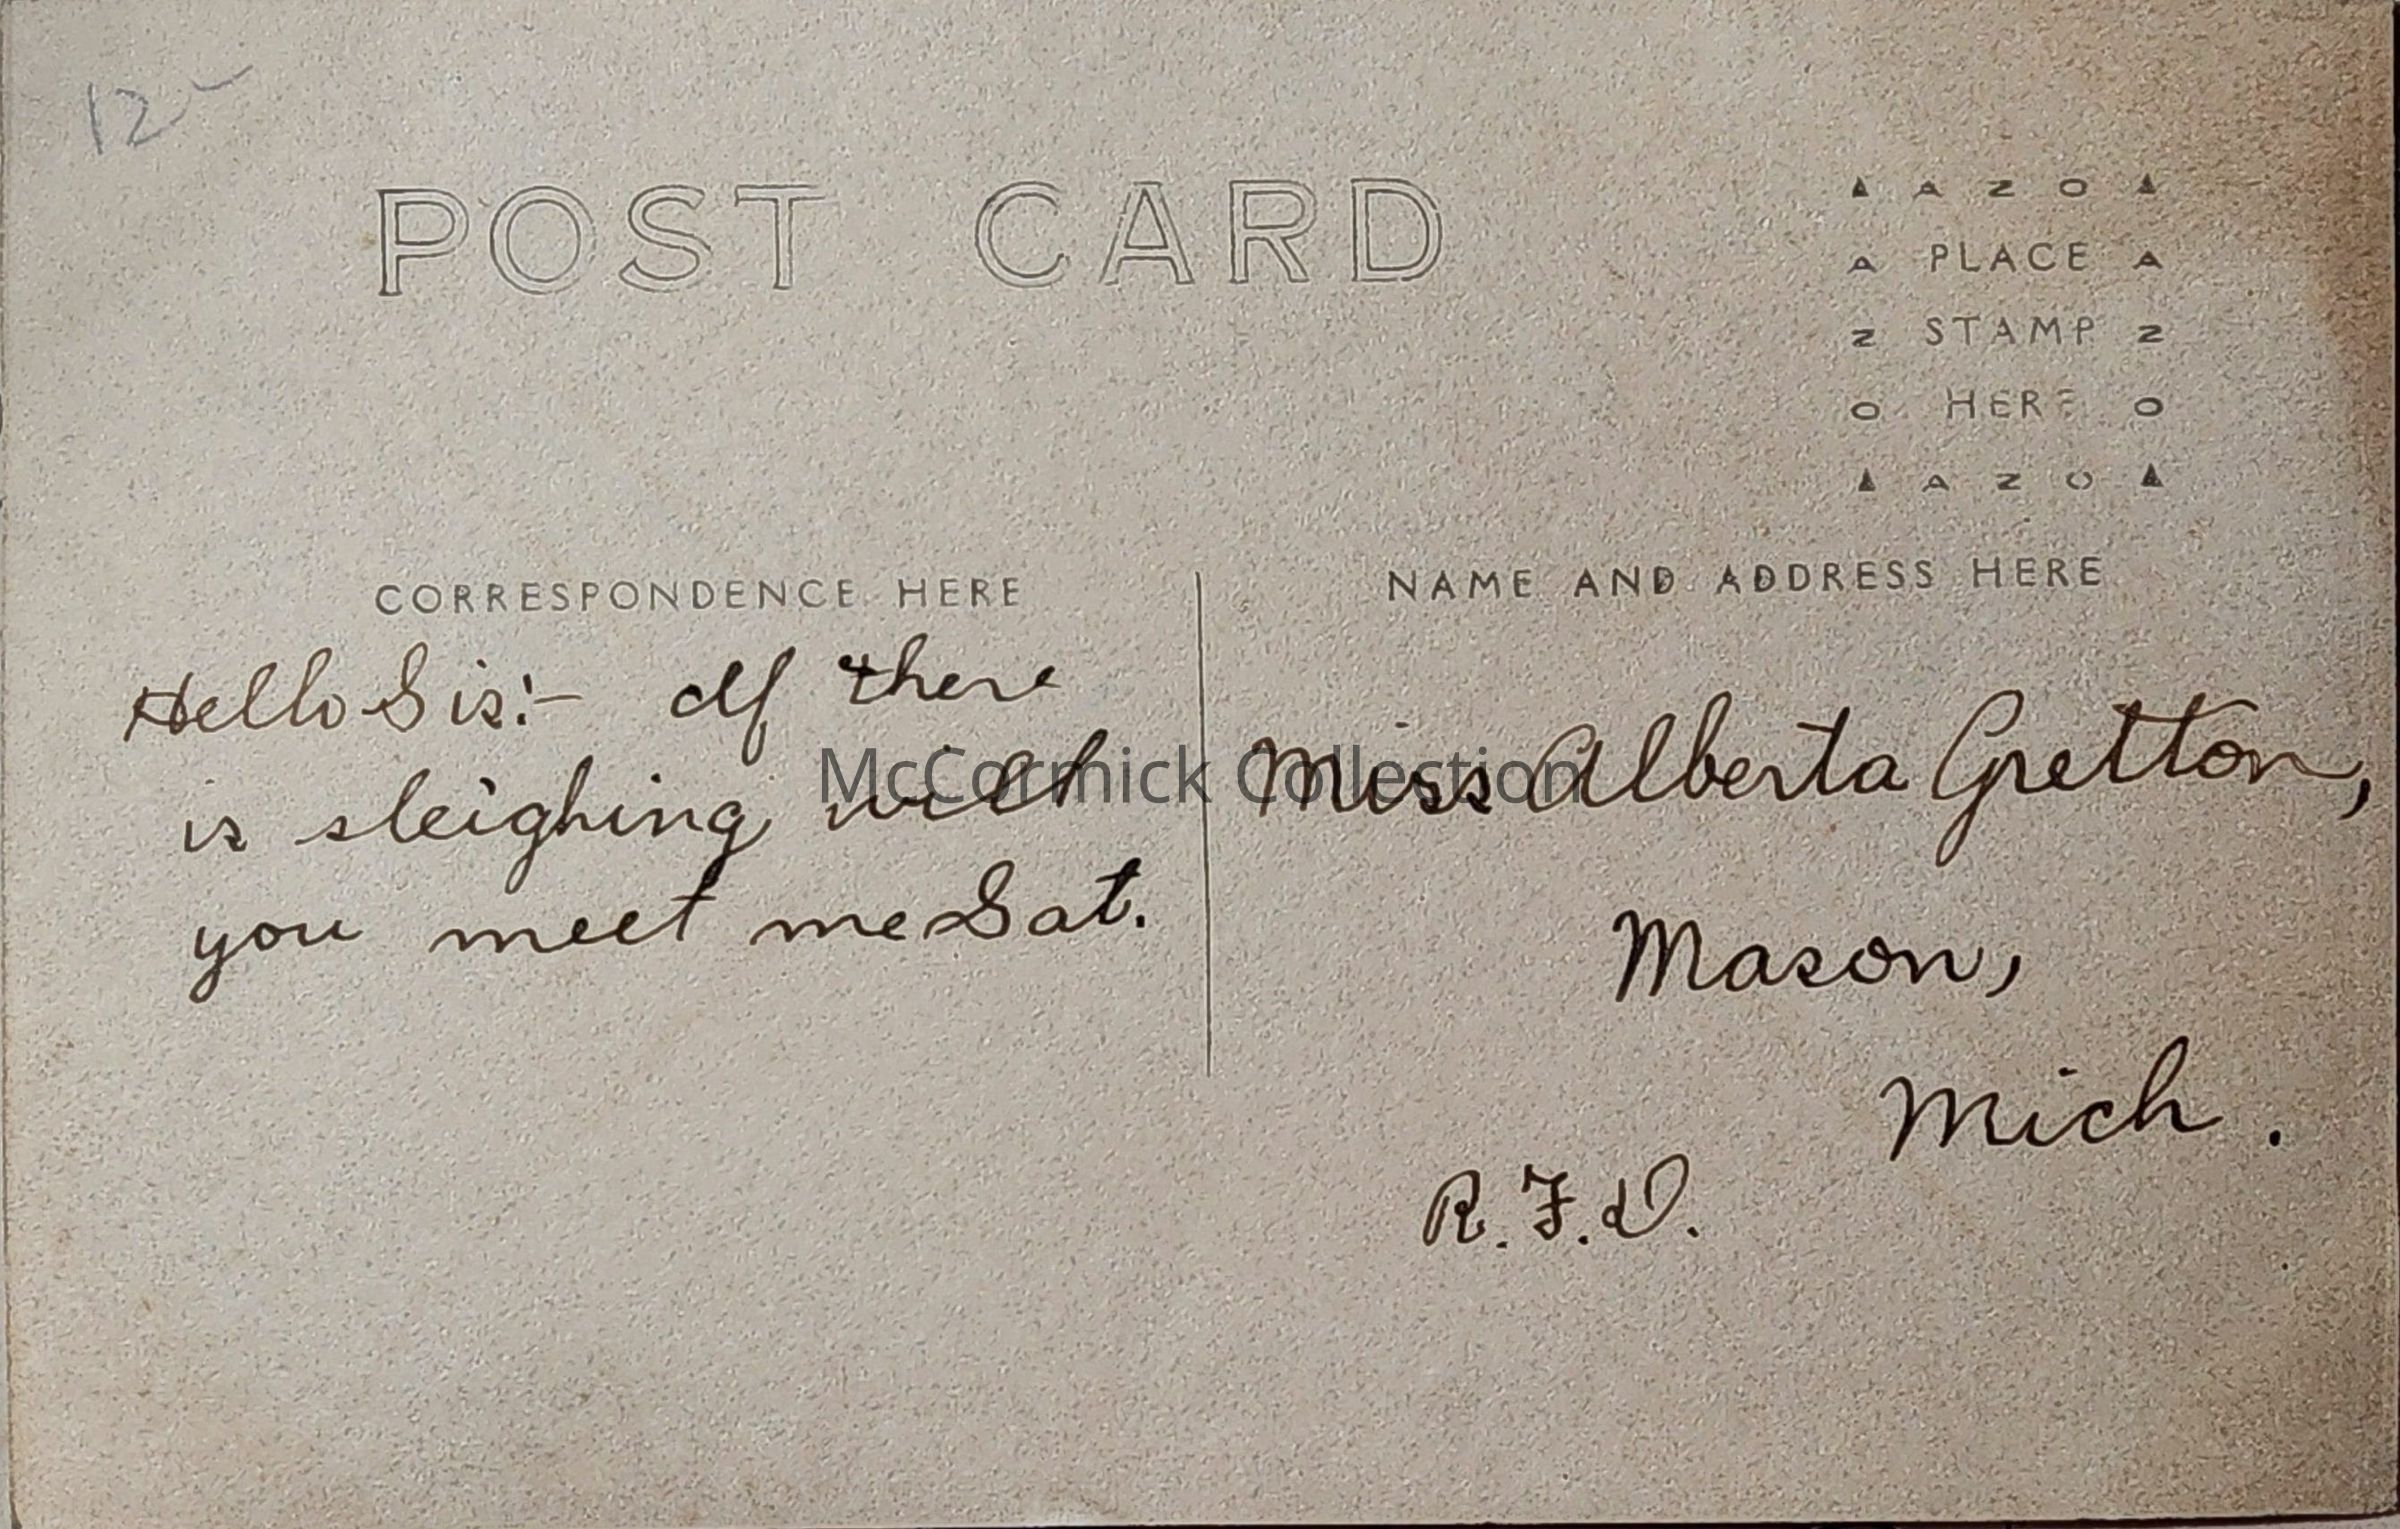 12-
POST CARD
▲ A Z O ▲
A PLACE A
Z STAMP Z
O HERE O
▲ A Z O ▲
CORRESPONDENCE HERE
Hello Sis:- If there
is sleighing will
you meet me Sat.
NAME AND ADDRESS HERE
Miss Alberta Gretton,
Mason,
Mich.
R.F.D.
McCormick Collection